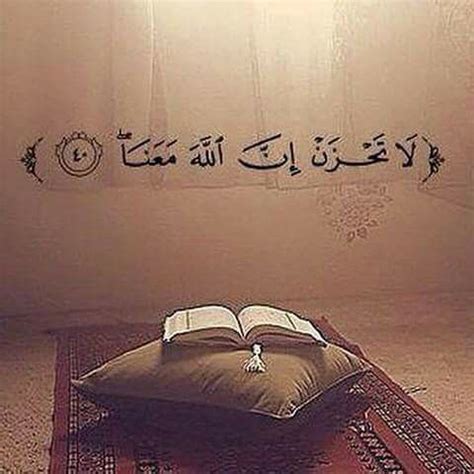 ﴿ لَا تَحْزَنْ إِنَّ ٱللَّهَ مَعَنَا ۖ ٤٠ ﴾